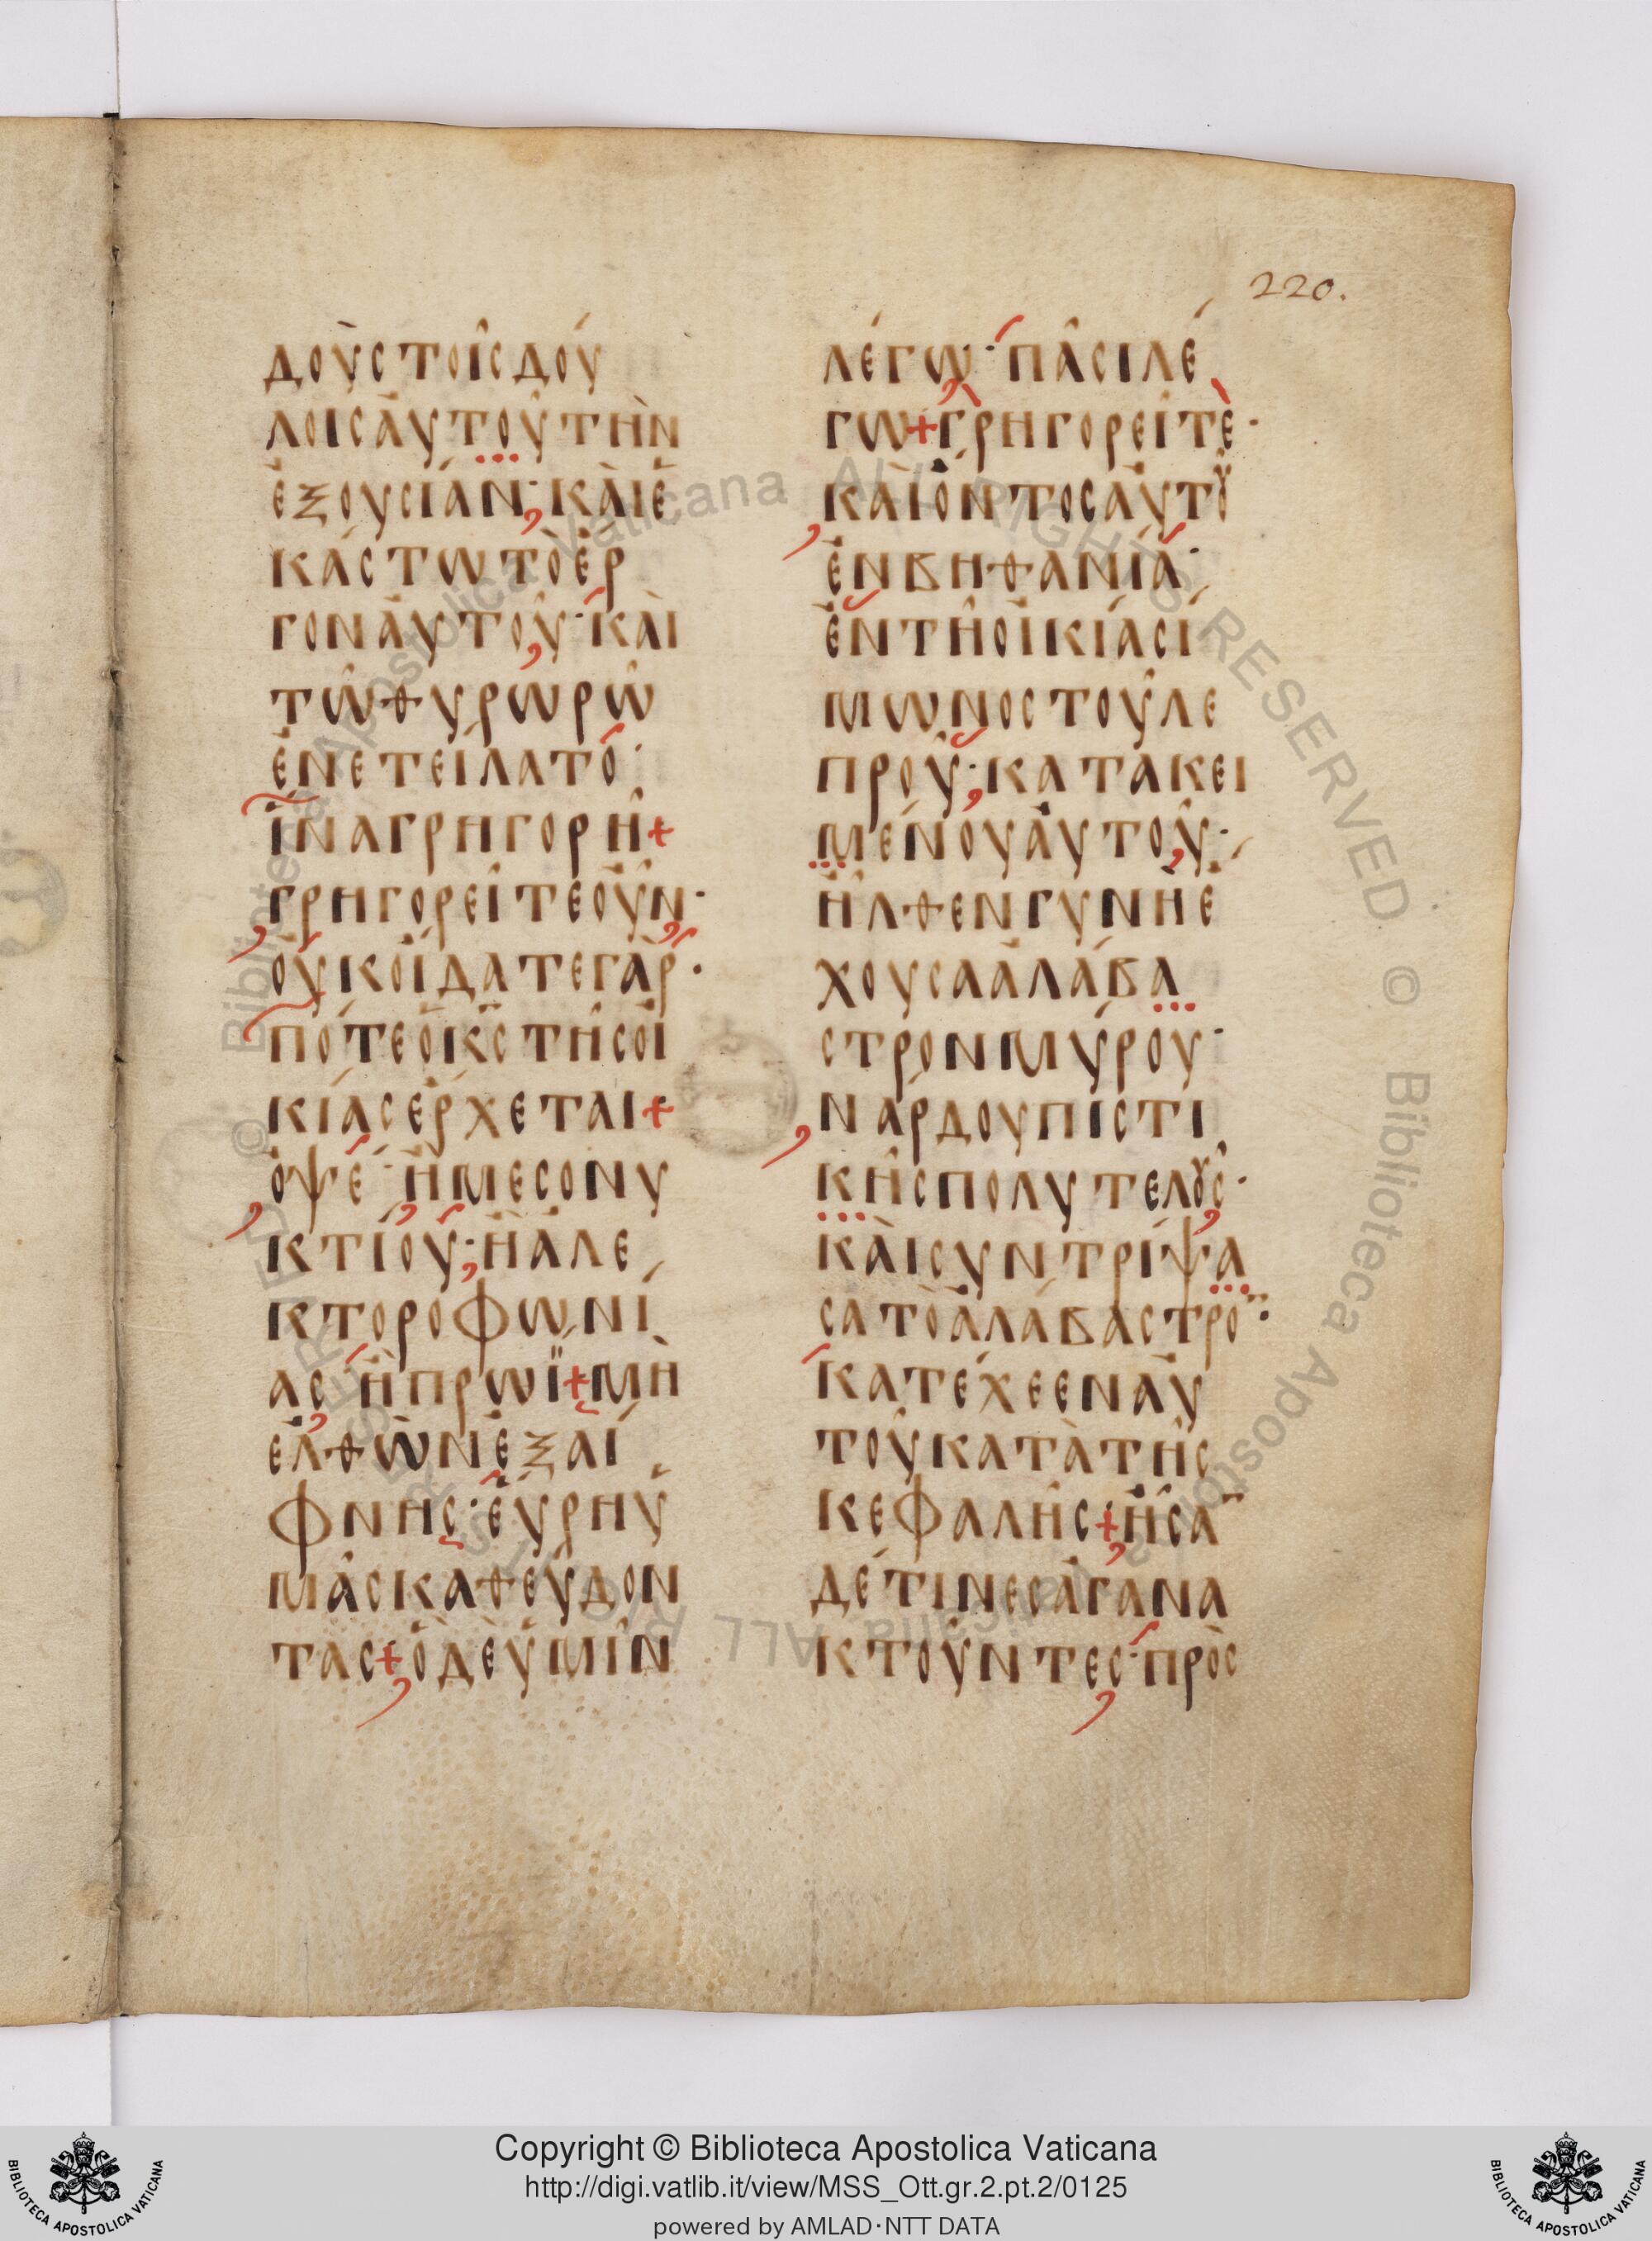 220.
ΔΟῪϹΤΟΙ͂ϹΔΟΎ
ΛΟΙϹἈΥΤΟΥ͂ΤῊΝ
ἘΞΟΥϹΊΑΝ· ΚᾺΙἘ
ΚΆϹΤΩΤῸἜΡ
ΓΟΝἈΥΤΟΥ͂· ΚᾺΙ
ΤΩ͂ΘΥΡΩΡΩ͂
ἘΝΕΤΕΊΛΑΤΟ·
ἽΝΑΓΡΗΓΟΡΗ͂+
ΓΡΗΓΟΡΕΙ͂ΤΕΟΥ͂̓Ν·
ΟΥ̓ΚΟΊ̓ΔΑΤΕΓᾺΡ·
ΠΌΤΕὉΚ̅Ϲ̅ΤΗ͂ϹΟἸ
ΚΊΑϹἜΡΧΕΤΑΙ+
ὈΨΈ· Ἢ̀ΜΕϹΟΝΥ
ΚΤΊΟΥ· ἪἈΛΕ
ΚΤΟΡΟΦΩΝΊ
ΑϹ· ἪΠΡΩΪ+ΜῊ
ἘΛΘῺΝἘΞΑΊ
ΦΝΗϹ· ἙΎΡΗὙ
ΜΑ͂ϹΚΑΘΕΎΔΟΝ
ΤΑϹ+ὉΔῈὙΜΙ͂Ν
ΛΈΓΩ· ΠΑ͂ϹΙΛΈ
ΓΩ+ΓΡΗΓΟΡΕΙ͂ΤῈ·
ΚᾺΙὌΝΤΟϹἈΥΤȢ͂
ἘΝΒΗΘΑΝΊΑ·
ἘΝΤΗ͂ΟἸΚΊΑϹΊ
ΜΩΝΟϹΤΟΥ͂ΛΕ
ΠΡΟΥ͂· ΚΑΤΑΚΕΙ
ΜΈΝΟΥἈΥΤΟΥ͂·
ἮΛΘΕΝΓΥΝΗἜ
ΧΟΥϹΑἈΛΆΒΑ
ϹΤΡΟΝΜΎΡΟΥ·
ΝΆΡΔΟΥΠΙϹΤΙ
ΚΗ͂ϹΠΟΛΥΤΕΛȢ͂Ϲ·
ΚᾺΙϹΥΝΤΡΊΨΑ
ϹΑΤῸἈΛΆΒΑϹΤΡΟ̅·
ΚΑΤΈΧΕΕΝἈΥ
ΤΟΥ͂ΚΑΤᾺΤΗ͂Ϲ
ΚΕΦΑΛΗ͂Ϲ+ἮϹΑ̅
ΔΈΤΙΝΕϹἈΓΑΝΑ
ΚΤΟΥ͂ΝΤΕϹ· ΠΡῸϹ
Copyright © Biblioteca Apostolica Vaticana
http://digi.vatlib.it/view/MSS_Ott.gr.2.pt.2/0125
powered by AMLAD·NTT DATA
BIBLIOTECA APOSTOLICA VATICANA
BIBLIOTECA APOSTOLICA VATICANA